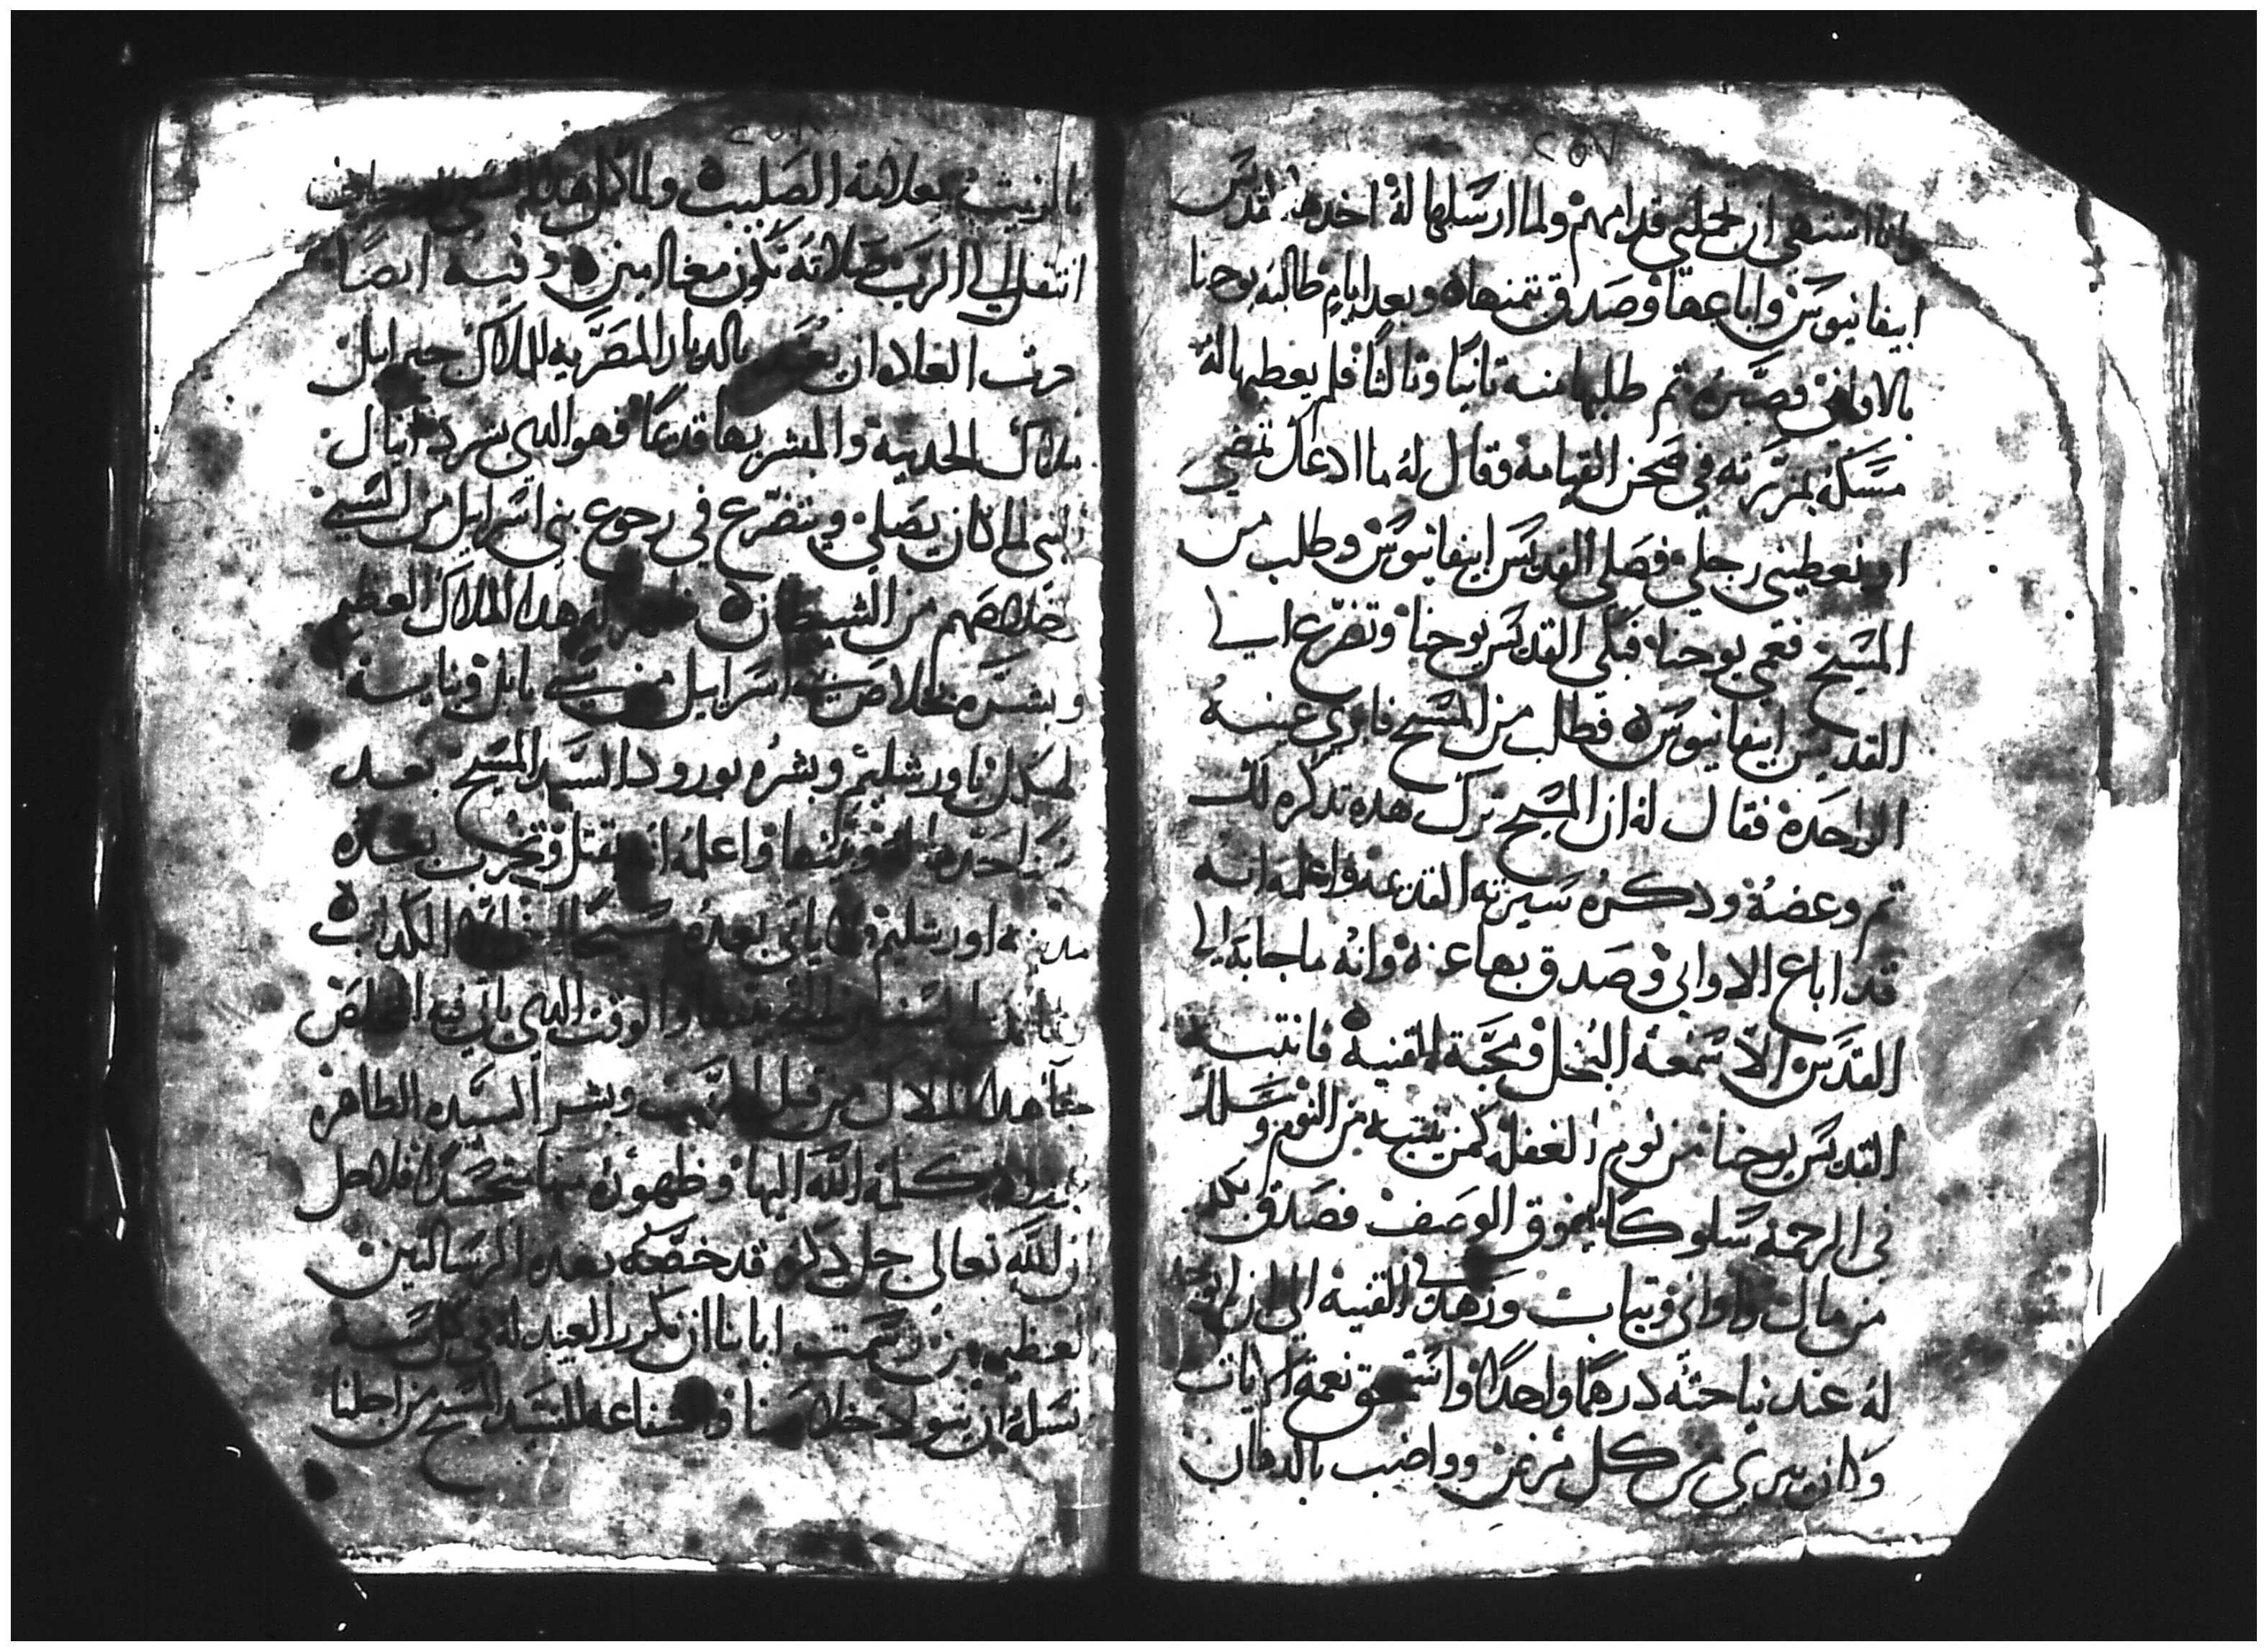 ٢٥٧
وانا اشتهي ان تجملني قدامهم ولما ارسلها له اخدها القديس
ابيفانيوس واباعها وصدق بثمنها وبعد ايام طالبه يوحنا
بالاواني فصبره تم طلبها منه تانيا وتالثا فلم يعطيها له
مسكه بمزرته في صحن القيامه وقال له ما ادعك تمضي
او تعطيني رحلي فصلى القديس ابيفانيوس وطلب من
المسيح فعمي يوحنا فبكى القديس يوحنا وتضرع الي
القديس ابيفانيوس فطلب من المسيح فابري عينه
الواحده فقال له ان المسيح ترك هده تدكره لك
تم وعضه ودكره سيرته القديمه واعلمه انه
قد اباع الاواني وصدق بها عنه وانه ما جا به الي
القدس الا سمعه البخل ومحبة القنيه فانتبه
القديس يوحنا من نوم الغفله كمن ينتبه من النوم وسلك
في الرحمه سلوكا يفوق الوصف فصدق بكل
من مال واواني وتياب وزهد في القنيه الي ان لم يوجد
له عند نياحته درهما واحدا واستحق نعمة الايات
وكان يبري من كل مرض وواضب بالدهان
٢٥٨
بالزيت بعلامة الصليب ولما
انتقل الي الرب صلاته تكون معنا امين وفيه ايضا
رتب العلاه ان يعيد بالديار المصريه للملاك جبراييل
ملاك الحديثه والمبشر بها قديما فهو الدي بشر دانيال
النبي لما كان يصلي ويتضرع في رجوع بني اسراييل من السبي
وخلاصهم من الشيطان فظهر له هدا الملاك العظيم
وبشره بخلاص بني اسراييل من سبي بابل وبنايه
هيكل باورشليم وبشره بورود السيد المسيح بعد
واعلمه انه يقتل وتخرب بعده
مدينه اورشليم ولا ياتي بعده مسيحا الكداب
والوقت الدي ياتي فيه المخلص
جا هدا الملاك من قبل الرب وبشر السيده الطاهره
بورود كلمة الله اليها وظهوره منها متجسدا فلاجل
ان الله تعالى جل دكره قد خصصه بهده الرسالتين
العظيمتين رسمت اباينا ان نكرر العيد له في كل سنه
نسله ان يتولا خلاصنا والشفاعه للسيد المسيح من اجلنا